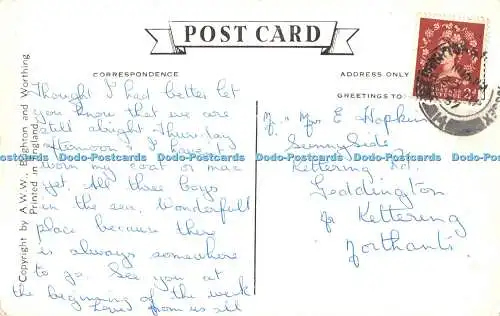 POST CARD
CORRESPONDENCE
ADDRESS ONLY
GREETINGS TO:
Thought I had better let
you know that we are
still alright. Thursday
afternoon & I haven't
worn my coat or mac
yet. All three boys
in the sea. Wonderfull
place because there
is always somewhere
to go. See you at
the beginning of the week
Love from us all
Mrs E Hopkins
Sunnyside
Kettering Rd.
Geddington
Nr Kettering
Northants.
Copyright by A.W.W., Brighton and Worthing
Printed in England.
Dodo-Postcards Dodo-Postcards Dodo-Postcards Dodo-Postcards Dodo-Postcards